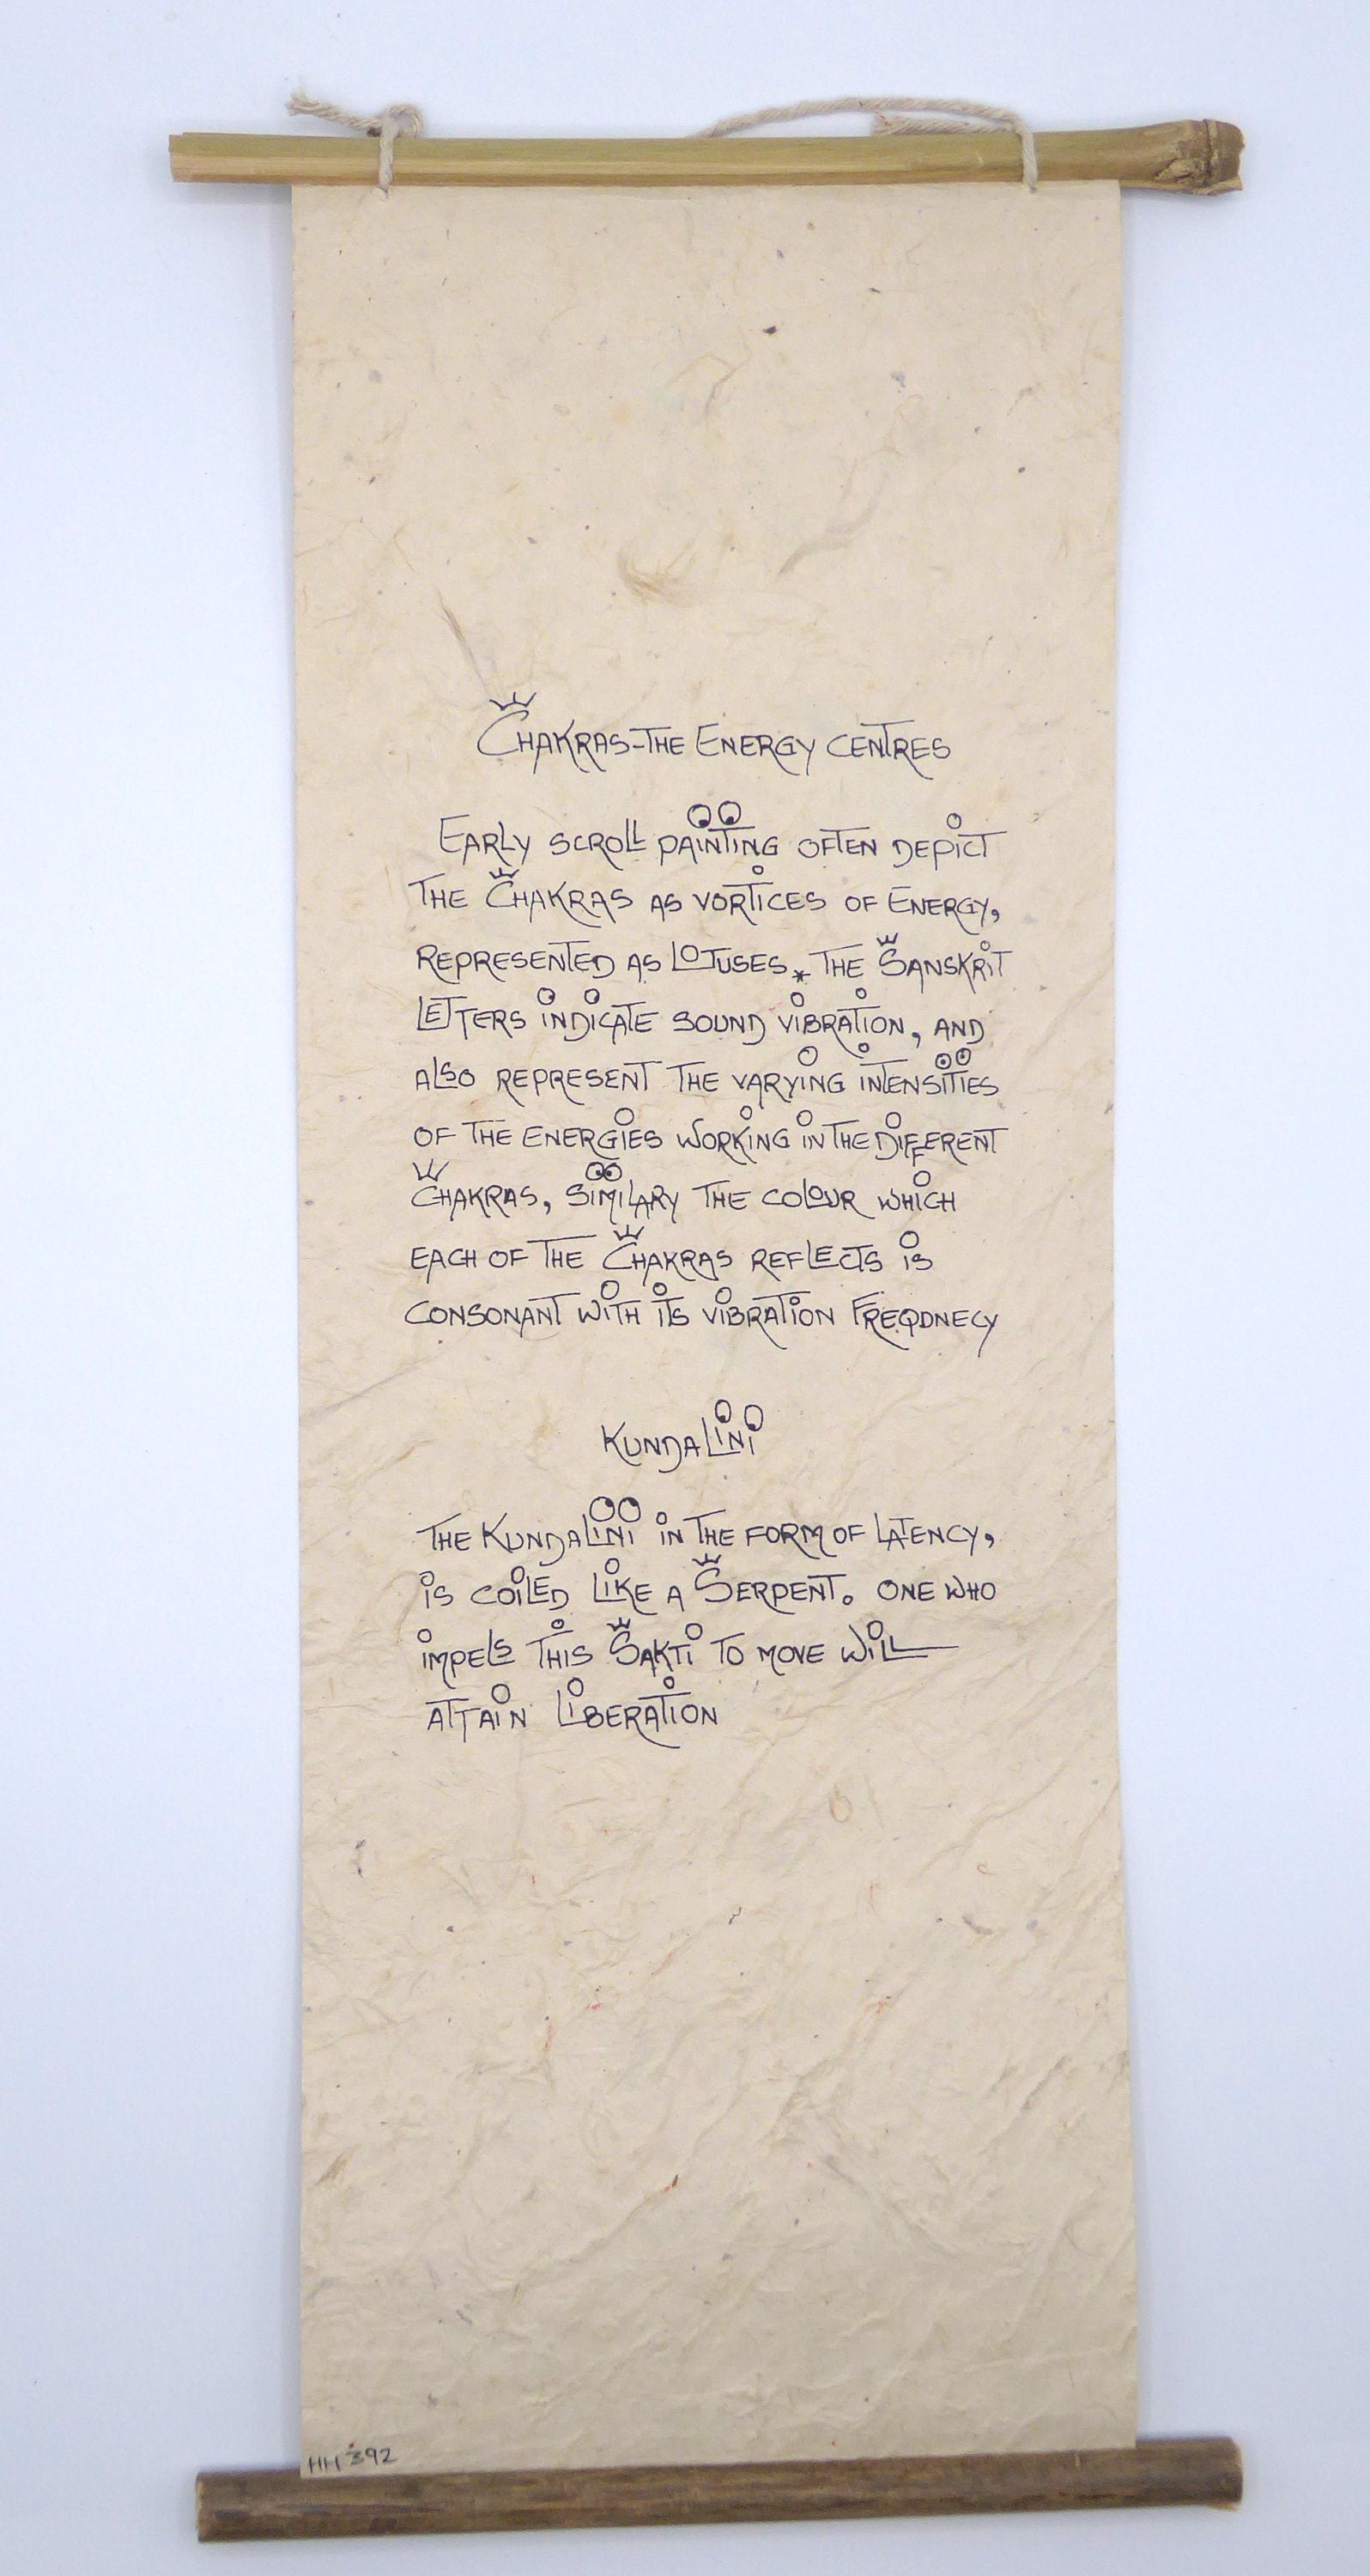 CHAKRAS-THE ENERGY CENTRES
EARLY SCROLL PAINTING OFTEN DEPICT
THE CHAKRAS AS VORTICES OF ENERGY,
REPRESENTED AS LOTUSES * THE SANSKRIT
LETTERS INDICATE SOUND VIBRATION, AND
ALSO REPRESENT THE VARYING INTENSITIES
OF THE ENERGIES WORKING IN THE DIFFERENT
CHAKRAS, SIMILARY THE COLOUR WHICH
EACH OF THE CHAKRAS REFLECTS IS
CONSONANT WITH ITS VIBRATION FREQDNECY
KUNDALINI
THE KUNDALINI IN THE FORM OF LATENCY,
IS COILED LIKE A SERPENT. ONE WHO
IMPELS THIS SAKTI TO MOVE WILL
ATTAIN LIBERATION
HH 392